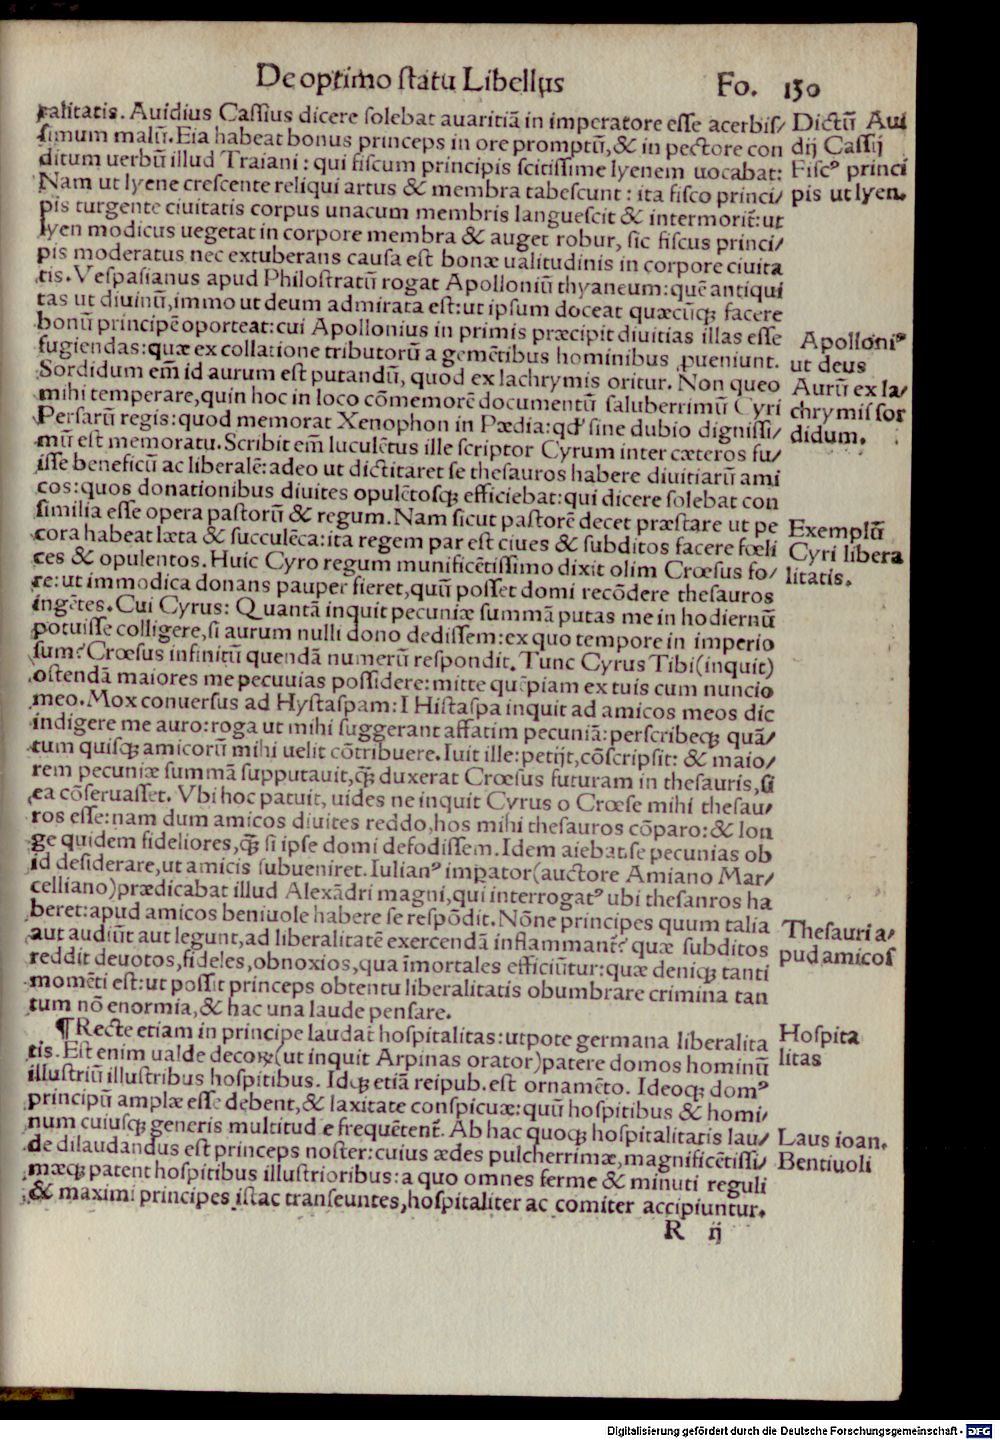 De optimo ſtatu Libellus Fo. 150
ralitatis. Auidius Caſſius dicere ſolebat auaritiã in imperatore eſſe acerbiſ/
ſimum malũ. Eia habeat bonus princeps in ore promptũ, & in pectore con
ditum uerbũ illud Traiani: qui fiſcum principis ſcitiſſime lyenem uocabat:
Nam ut lyene creſcente reliqui artus & membra tabeſcunt: ita fiſco princi/
pis turgente ciuitatis corpus unacum membris langueſcit & intermorit̃: ut
lyen modicus uegetat in corpore membra & auget robur, ſic fiſcus princi/
pis moderatus nec extuberans cauſa eſt bonæ ualitudinis in corpore ciuita
tis. Veſpaſianus apud Philoſtratũ rogat Apolloniũ thyaneum: quẽ antiqui
tas ut diuinũ, immo ut deum admirata eſt: ut ipſum doceat quæcũqꝫ facere
bonũ principẽ oporteat: cui Apollonius in primis præcipit diuitias illas eſſe
fugiendas: quæ ex collatione tributorũ a gemẽtibus hominibus ꝓueniunt.
Sordidum em̃ id aurum eſt putandũ, quod ex lachrymis oritur. Non queo
mihi temperare, quin hoc in loco cõmemorẽ documentũ ſaluberrimũ Cyri
Perſarũ regis: quod memorat Xenophon in Pædia: qđ ſine dubio digniſſi/
mũ eſt memoratu. Scribit em̃ luculẽtus ille ſcriptor Cyrum inter cæteros fu/
iſſe beneficũ ac liberalẽ: adeo ut dictitaret ſe theſauros habere diuitiarũ ami
cos: quos donationibus diuites opulẽtoſqꝫ efficiebat: qui dicere ſolebat con
ſimilia eſſe opera paſtorũ & regum. Nam ſicut paſtorẽ decet præſtare ut pe
cora habeat læta & ſucculẽca: ita regem par eſt ciues & ſubditos facere fœli
ces & opulentos. Huic Cyro regum munificẽtiſſimo dixit olim Crœſus fo/
re: ut immodica donans pauper fieret, quũ poſſet domi recõdere theſauros
ingẽtes. Cui Cyrus: Quantã inquit pecuniæ ſummã putas me in hodiernũ
potuiſſe colligere, ſi aurum nulli dono dediſſem: ex quo tempore in imperio
ſum? Crœſus infinitũ quendã numerũ reſpondit. Tunc Cyrus Tibi (inquit)
oſtendã maiores me pecuuias poſſidere: mitte quẽpiam ex tuis cum nuncio
meo. Mox conuerſus ad Hyſtaſpam: I Hiſtaſpa inquit ad amicos meos dic
indigere me auro: roga ut mihi ſuggerant affatim pecuniã: perſcribeqꝫ quã/
tum quiſqꝫ amicorũ mihi uelit cõtribuere. Iuit ille: petijt, cõſcripſit: & maio/
rem pecuniæ ſummã ſupputauit, q̃ꝫ duxerat Crœſus futuram in theſauris, ſi
ea cõſeruaſſet. Vbi hoc patuit, uides ne inquit Cyrus o Crœſe mihi theſau/
ros eſſe: nam dum amicos diuites reddo, hos mihi theſauros cõparo: & lon
ge quidem fideliores, q̃ꝫ ſi ipſe domi defodiſſem. Idem aiebat ſe pecunias ob
id deſiderare, ut amicis ſubueniret. Iulianꝰ imꝑator (auctore Amiano Mar/
celliano) prædicabat illud Alexãdri magni, qui interrogatꝰ ubi theſanros ha
beret: apud amicos beniuole habere ſe reſpõdit. Nõne principes quum talia
aut audiũt aut legunt, ad liberalitatẽ exercendã inflammant̃? quæ ſubditos
reddit deuotos, fideles, obnoxios, qua ĩmortales efficiũtur: quæ deniqꝫ tanti
momẽti eſt: ut poſſit princeps obtentu liberalitatis obumbrare crimina tan
tum nõ enormia, & hac una laude penſare.
¶ Recte etiam in principe laudat̃ hoſpitalitas: utpote germana liberalita
tis. Eſt enim ualde decoꝝ (ut inquit Arpinas orator) patere domos hominũ
illuſtriũ illuſtribus hoſpitibus. Idqꝫ etiã reipub. eſt ornamẽto. Ideoqꝫ domꝰ
principũ amplæ eſſe debent, & laxitate conſpicuæ: quũ hoſpitibus & homi/
num cuiuſqꝫ generis multitud e frequẽtent̃. Ab hac quoqꝫ hoſpitalitatis lau/
de dilaudandus eſt princeps noſter: cuius ædes pulcherrimæ, magnificẽtiſſi/
mæqꝫ patent hoſpitibus illuſtrioribus: a quo omnes ferme & minuti reguli
& maximi principes iſtac tranſeuntes, hoſpitaliter ac comiter accipiuntur.
R ij
Dictũ Aui
dij Caſſij
Fiſcꝰ princi
pis ut lyen.
Apolloniꝰ
ut deus
Aurũ ex la/
chrymiſ ſor
didum.
Exemplũ
Cyri libera
litatis.
Theſauri a/
pud amicoſ
Hoſpita
litas
Laus ioan.
Bentiuoli
Digitalisierung gefördert durch die Deutsche Forschungsgemeinschaft - DFG